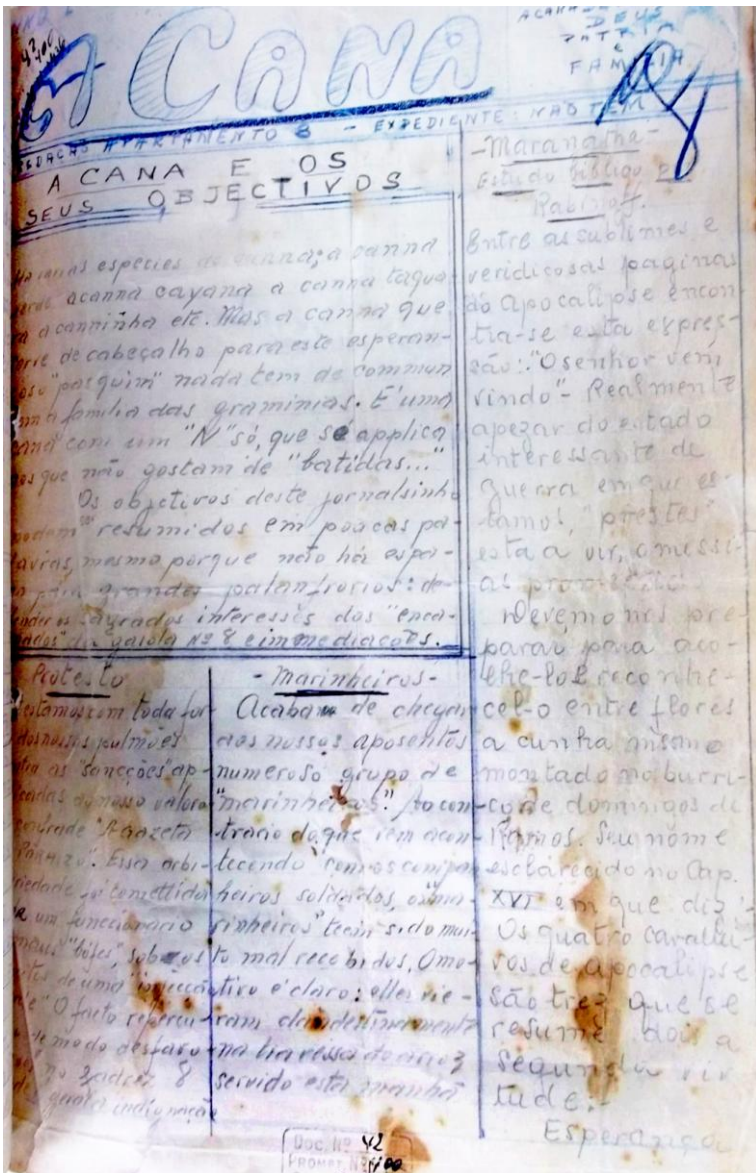 A CANA
DEUS
PATRIA
E
FAMILIA
REDACÇÃO APARTAMENTO 8 - EXPEDIENTE: NÃO TEM
A CANA E OS
SEUS OBJECTIVOS
varias especies de canna; a canna
acanna cayana a canna taqua-
a canninha etc. Mas a canna que
serve de cabeçalho para este esperan-
çoso "pasquim" nada tem de commun
na familia das graminias. E' uma
cana com um "N" só, que se applica
aos que não gostam de "batidas..."
Os objectivos deste jornalsinho
podem resumidos em poucas pa-
lavras, mesmo porque não há espa-
ço para grandes palanfrorios: de-
fender os sagrados interesses dos "enca-
nados" da gaiola Nº 8 e immediações.
Protesto
estamos com toda for
dos nossos pulmões
as "sancções" ap-
licadas ao nosso valoro
"A Gazeta
Essa arbi-
triedade foi comettida
um funccionario
sob os
de uma injecção
O facto repercu-
de modo desfavo
no xadrez 8
geral a indignação
- Marinheiros -
Acabam de chegar
aos nossos aposentos
numeroso grupo de
"marinheiros". Ao con-
trario do que vem acon-
tecendo com os compan
heiros soldados, os "ma-
rinheiros" teem sido mui-
to mal recebidos. O mo-
tivo é claro: elles vie-
ram clandestinamente
na travessa do arroz
servido esta manhã
- Maranatha -
Estudo biblico p.
Rabinoff.
Entre as sublimes e
veridicosas paginas
do Apocalipse encon
tra-se esta expres-
são: "O senhor vem
vindo" - Realmente
apezar do estado
interessante de
guerra em que es-
tamos, "prestes"
está a vir, o messi-
as
Devemo nos pre-
parar para aco-
lhe-lo e reconhe-
cel-o entre flores
a cunha mesmo
montado no burri-
co de domingos de
Ramos. Seu nome
esclarecido no Cap.
XVI em que diz:
Os quatro cavallei
ros de apocalipse
são trez que se
resume dois a
segunda vir
tude:-
Esperança
Doc. Nº 42
PROMPT. Nº